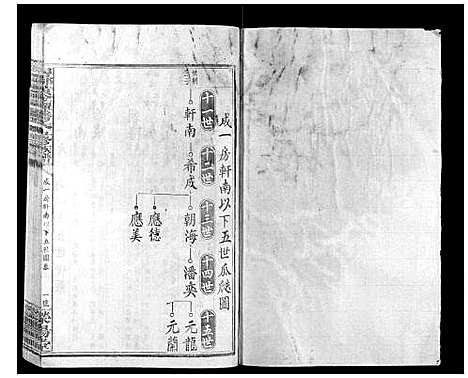 咸一房軒南以下五世瓜瓞圖
十一世
十二世
十三世
十四世
十五世
軒南
希成
朝海
潘奕
元龍
應德
元蘭
應美
咸一房軒南以下五世圖